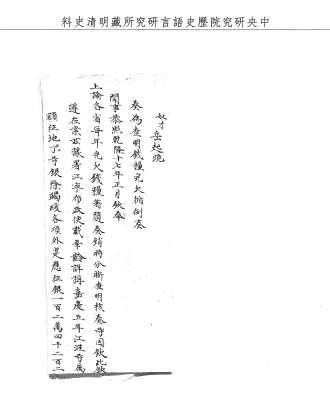 中央研究院歷史語言研究所藏明清史料
奴才岳起跪
奏為查明錢糧完欠循例奏
聞事恭照乾隆十七年正月欽奉
上諭各省每年完欠錢糧著隨奏銷時分晰查明核奏等因欽此欽
遵在案茲據署江寧布政使詳稱嘉慶五年江淮等屬
額征地丁等銀除蠲緩各項外應征銀一百二萬四千二百二